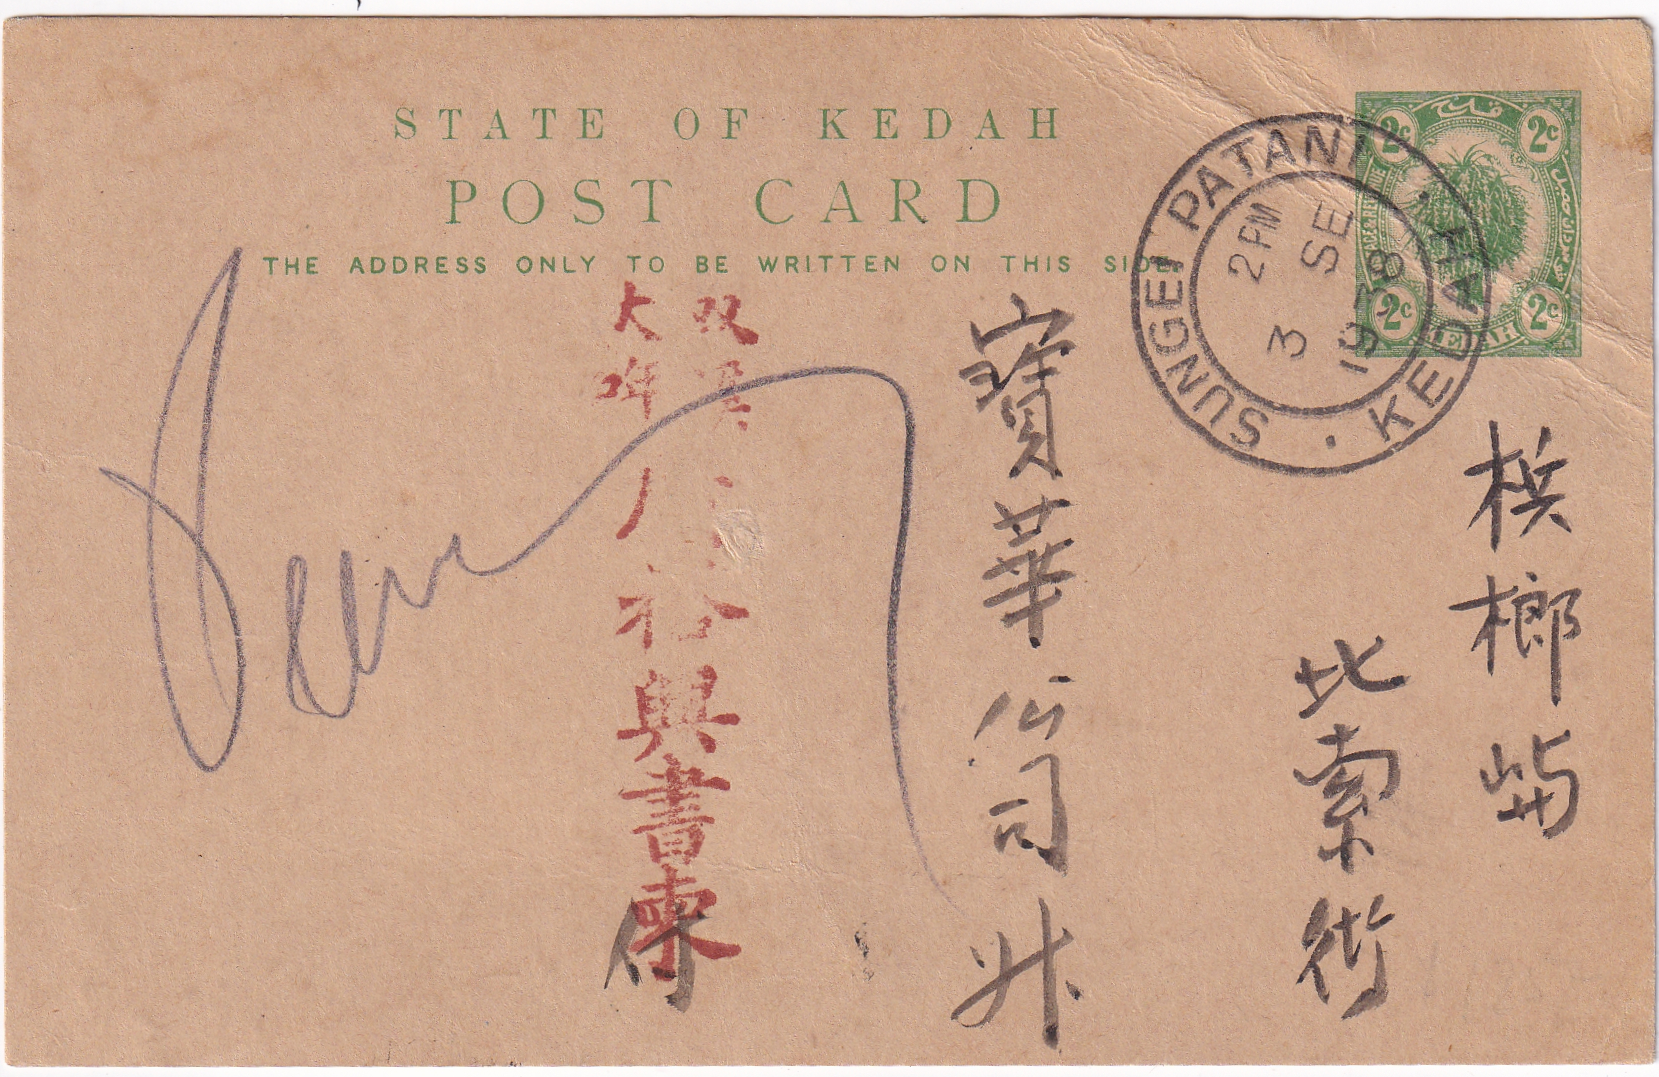 STATE OF KEDAH
POST CARD
THE ADDRESS ONLY TO BE WRITTEN ON THIS SIDE.
2c 2c
2c 2c
KEDAH
SUNGEI PATANI
KEDAH
2 PM
3 SE
1938
檳榔嶼
吡索街
寶華公司升
双溪
大年
興書柬
Penang